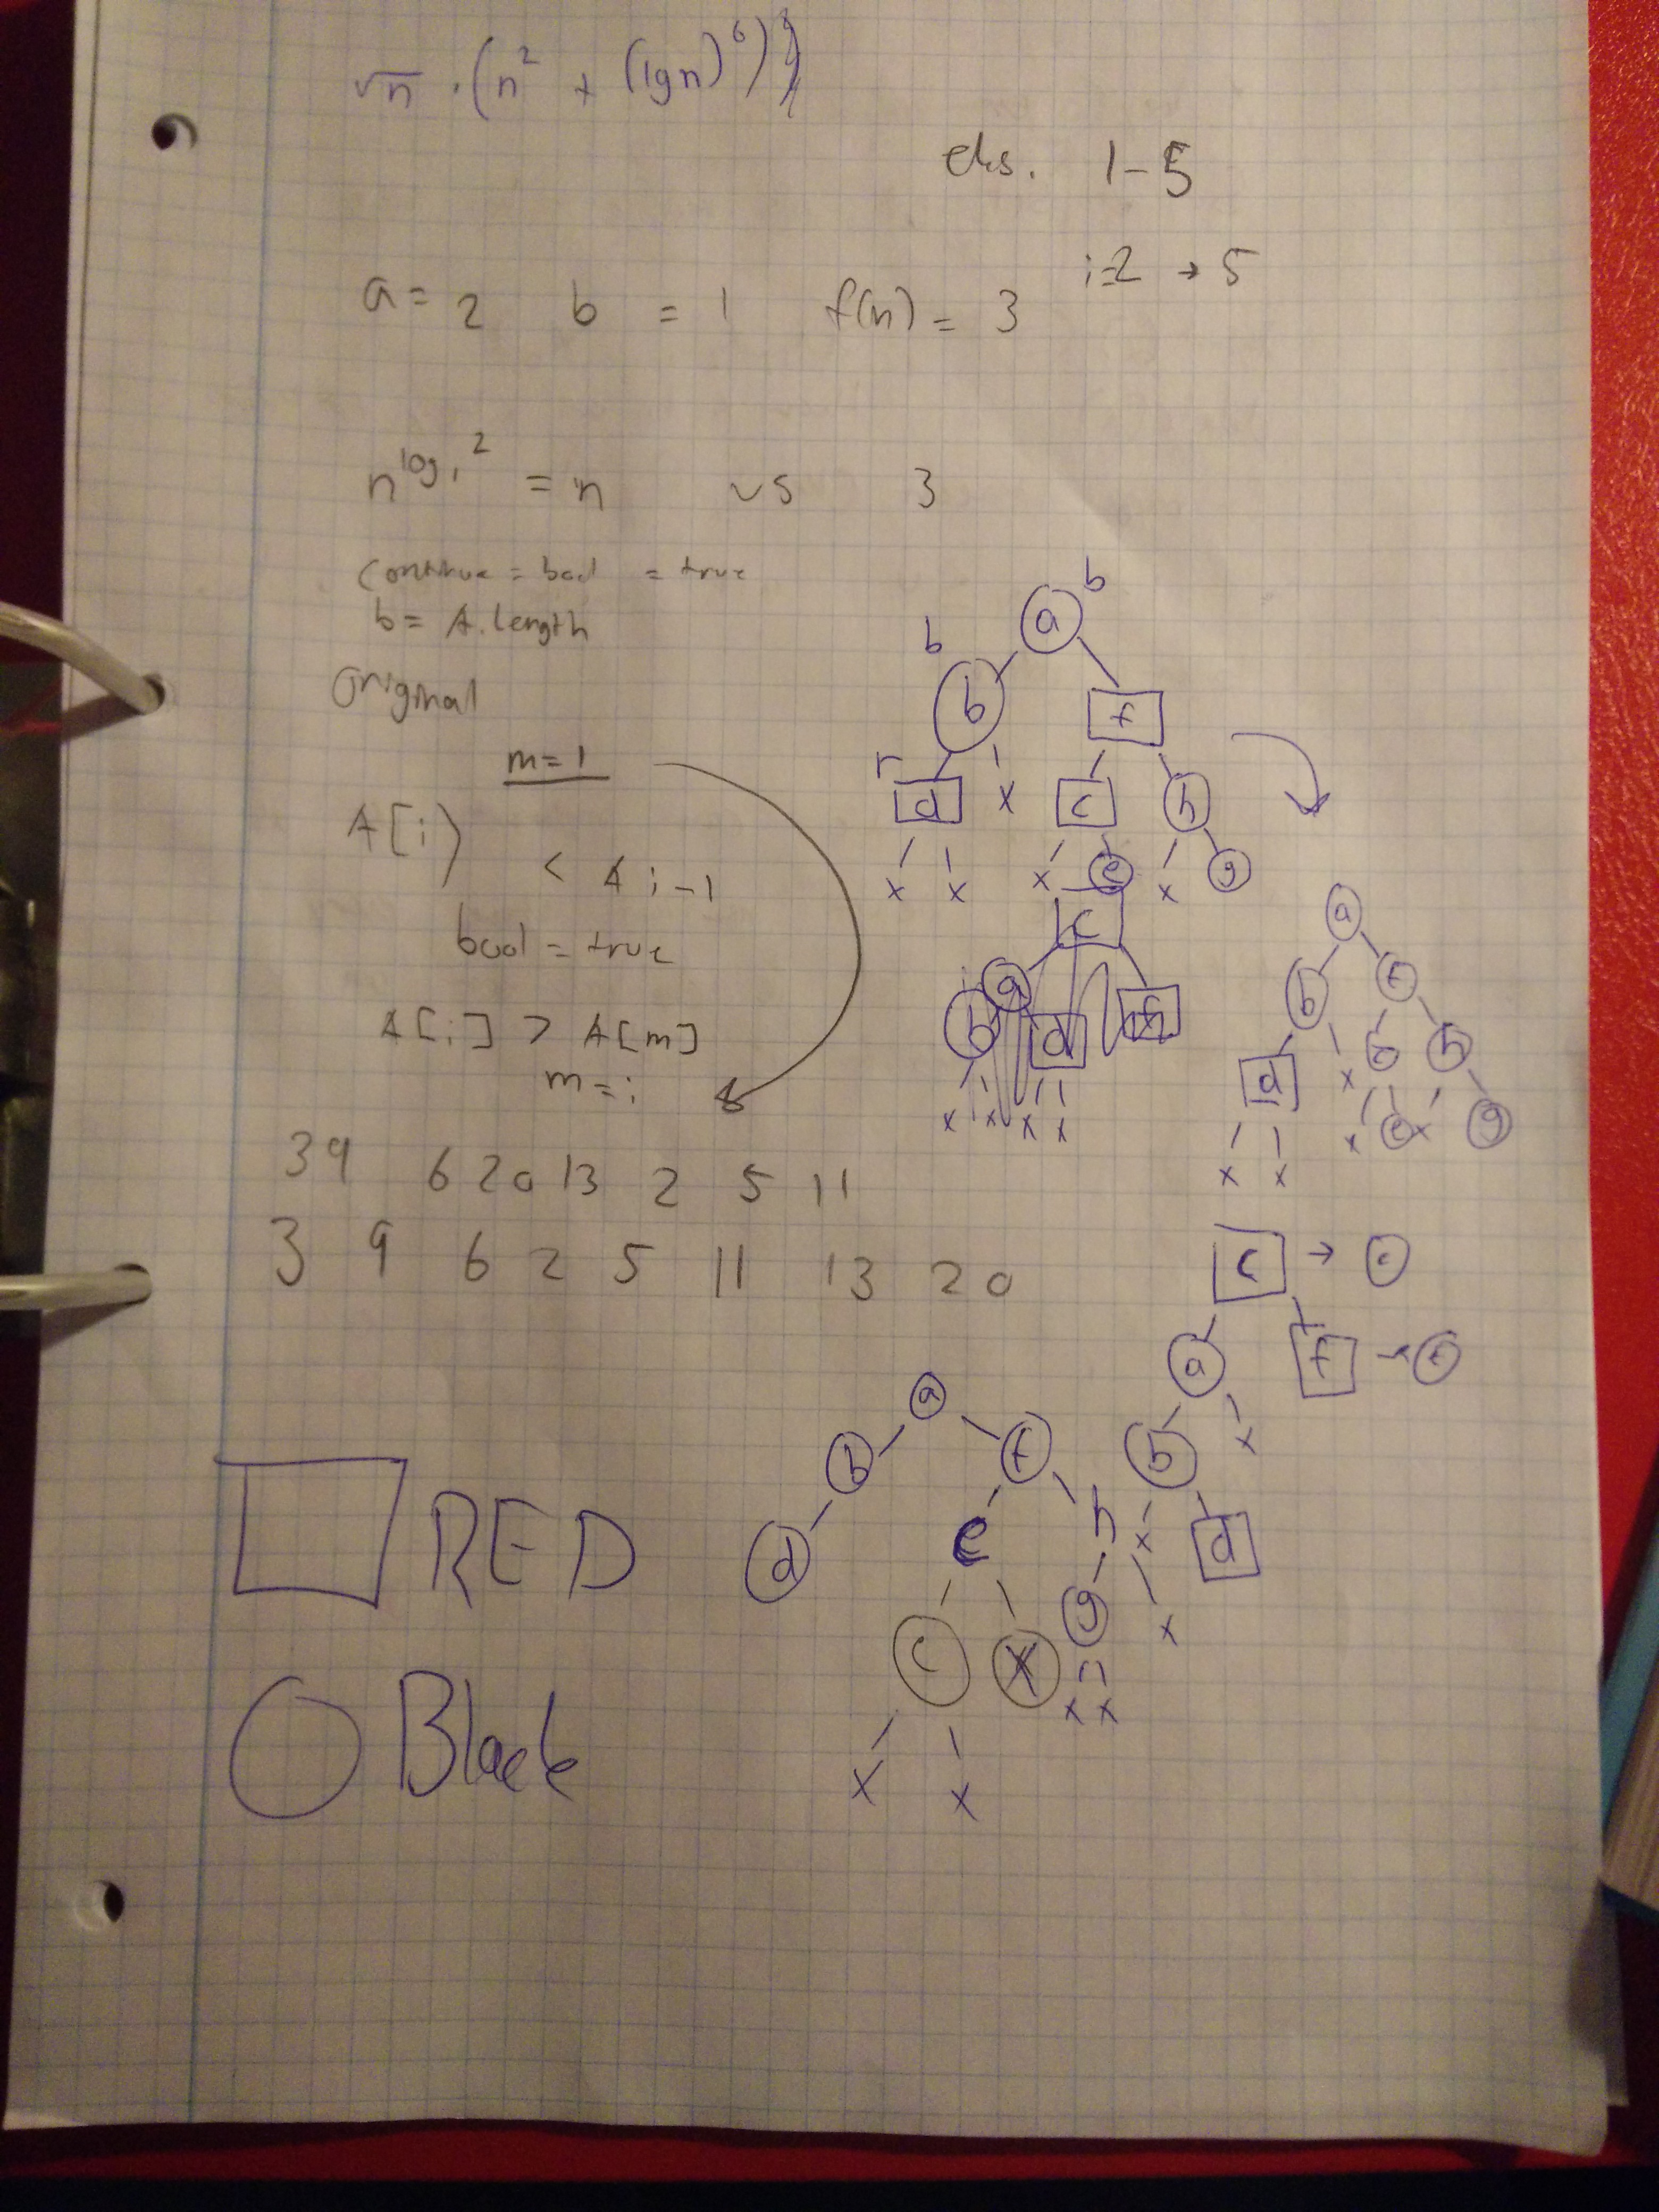 √n · (n² + (lg n)⁶))
eks. 1-5
i=2 → 5
a = 2 b = 1 f(n) = 3
n^log₁2 = n vs 3
continue = bool = true
b = A.length
Original
m=1
A[i]
< A i-1
bool = true
A[i] > A[m]
m = i
39 6 20 13 2 5 11
3 9 6 2 5 11 13 20
b
a
b
b f
r
d x c h
x x x e x g
c
a
b d
x x x x
a
b f
d x h
x x x e x g
c →
a f →
b x
x d
x
a
b f
d e h
c x g
x x
x x
RED
Black